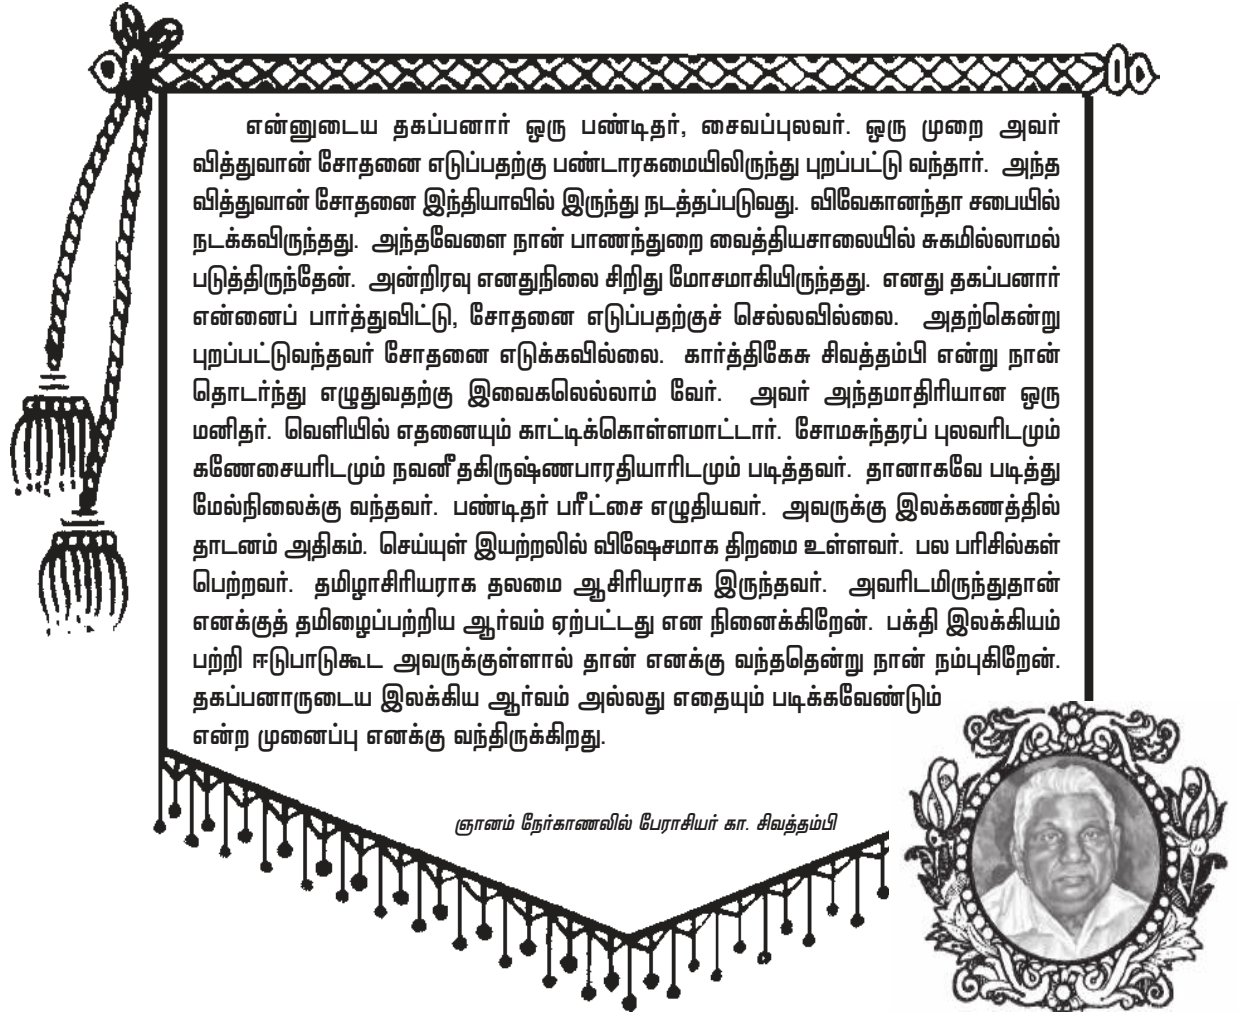 என்னுடைய தகப்பனார் ஒரு பண்டிதர், சைவப்புலவர். ஒரு முறை அவர்
வித்துவான் சோதனை எடுப்பதற்கு பண்டாரகமையிலிருந்து புறப்பட்டு வந்தார். அந்த
வித்துவான் சோதனை இந்தியாவில் இருந்து நடத்தப்படுவது. விவேகானந்தா சபையில்
நடக்கவிருந்தது. அந்தவேளை நான் பாணந்துறை வைத்தியசாலையில் சுகமில்லாமல்
படுத்திருந்தேன். அன்றிரவு எனதுநிலை சிறிது மோசமாகியிருந்தது. எனது தகப்பனார்
என்னைப் பார்த்துவிட்டு, சோதனை எடுப்பதற்குச் செல்லவில்லை. அதற்கென்று
புறப்பட்டுவந்தவர் சோதனை எடுக்கவில்லை. கார்த்திகேசு சிவத்தம்பி என்று நான்
தொடர்ந்து எழுதுவதற்கு இவைகலெல்லாம் வேர். அவர் அந்தமாதிரியான ஒரு
மனிதர். வெளியில் எதனையும் காட்டிக்கொள்ளமாட்டார். சோமசுந்தரப் புலவரிடமும்
கணேசையரிடமும் நவனீதகிருஷ்ணபாரதியாரிடமும் படித்தவர். தானாகவே படித்து
மேல்நிலைக்கு வந்தவர். பண்டிதர் பரீட்சை எழுதியவர். அவருக்கு இலக்கணத்தில்
தாடனம் அதிகம். செய்யுள் இயற்றலில் விஷேசமாக திறமை உள்ளவர். பல பரிசில்கள்
பெற்றவர். தமிழாசிரியராக தலமை ஆசிரியராக இருந்தவர். அவரிடமிருந்துதான்
எனக்குத் தமிழைப்பற்றிய ஆர்வம் ஏற்பட்டது என நினைக்கிறேன். பக்தி இலக்கியம்
பற்றி ஈடுபாடுகூட அவருக்குள்ளால் தான் எனக்கு வந்ததென்று நான் நம்புகிறேன்.
தகப்பனாருடைய இலக்கிய ஆர்வம் அல்லது எதையும் படிக்கவேண்டும்
என்ற முனைப்பு எனக்கு வந்திருக்கிறது.
ஞானம் நேர்காணலில் பேராசியர் கா. சிவத்தம்பி